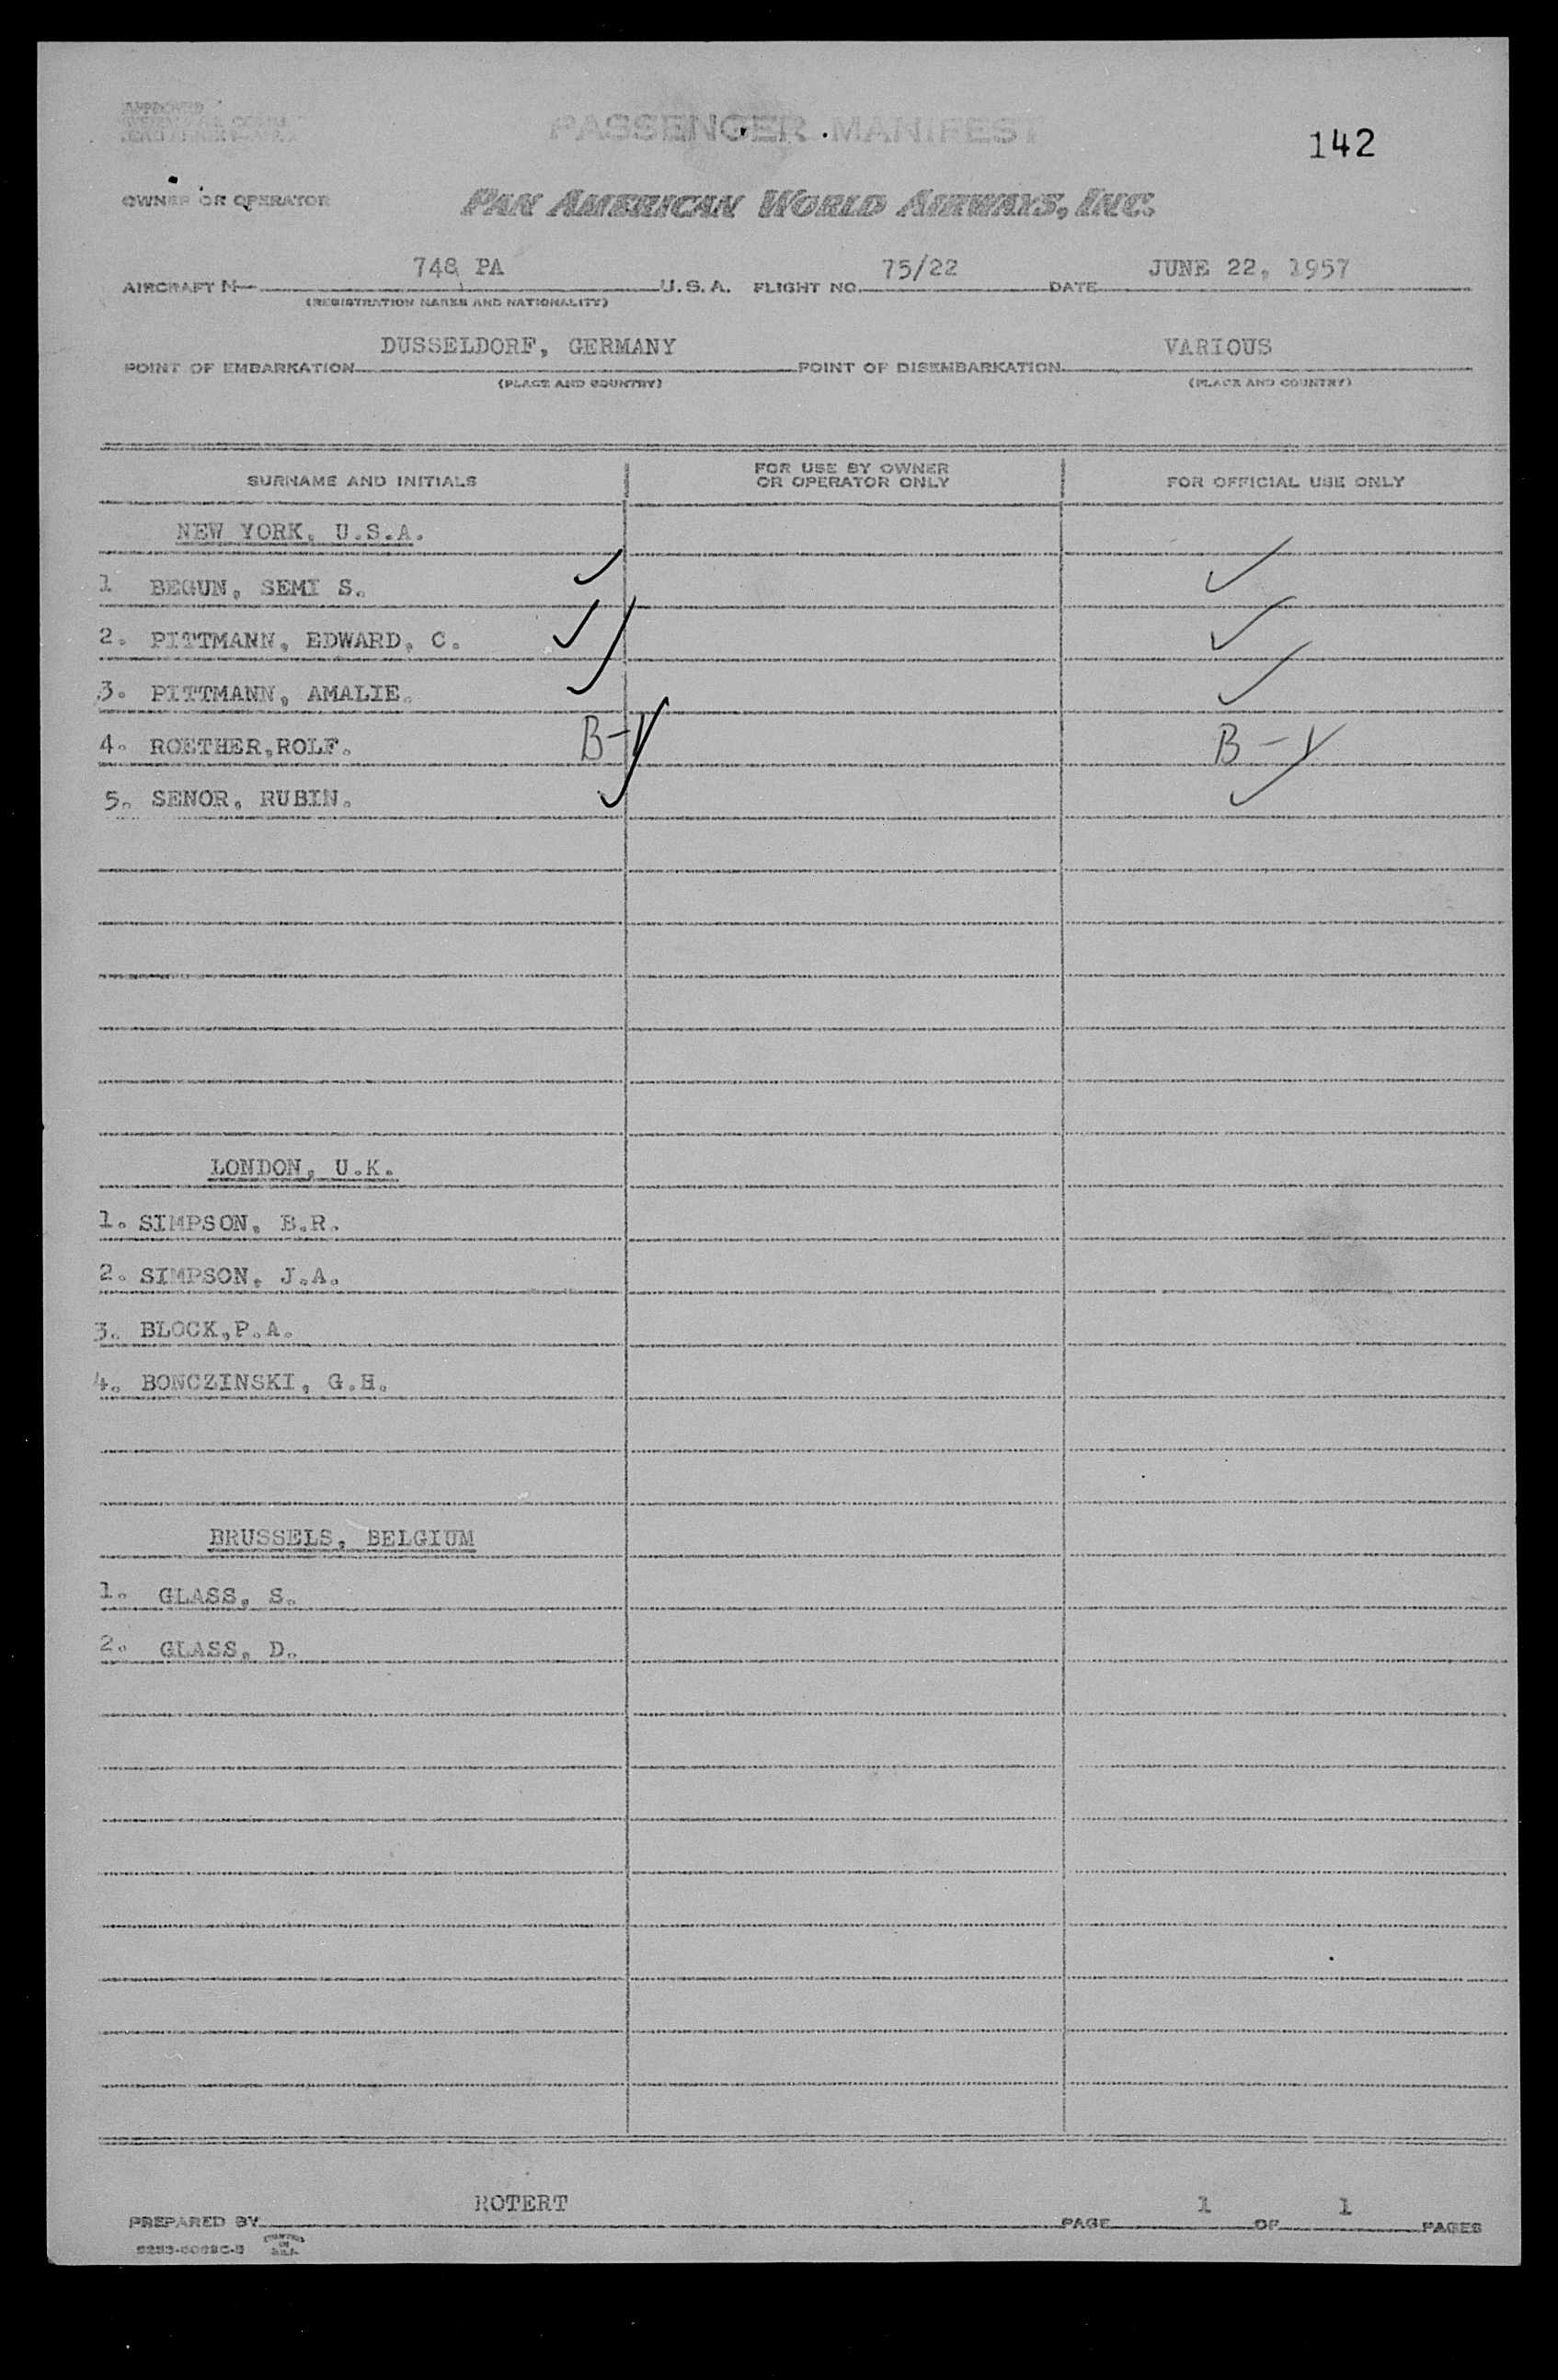 APPROVED
PASSENGER MANIFEST
142
OWNER OR OPERATOR PAN AMERICAN WORLD AIRWAYS, INC.
AIRCRAFT N— 748 PA U.S.A. FLIGHT NO. 75/22 DATE JUNE 22, 1957
(REGISTRATION MARKS AND NATIONALITY)
POINT OF EMBARKATION DUSSELDORF, GERMANY POINT OF DISEMBARKATION VARIOUS
(PLACE AND COUNTRY) (PLACE AND COUNTRY)
SURNAME AND INITIALS FOR USE BY OWNER OR OPERATOR ONLY FOR OFFICIAL USE ONLY
NEW YORK, U.S.A.
1 BEGUN, SEMI S. ✓ ✓
2. PITTMANN, EDWARD, C. ✓ ✓
3. PITTMANN, AMALIE. ✓ ✓
4. ROETHER,ROLF. B-Y B-Y
5. SENOR, RUBIN. ✓ ✓
LONDON, U.K.
1. SIMPSON, B.R.
2. SIMPSON, J.A.
3. BLOCK,P.A.
4. BONCZINSKI, G.H.
BRUSSELS, BELGIUM
1. GLASS, S.
2. GLASS, D.
PREPARED BY ROTERT PAGE 1 OF 1 PAGES
PRINTED IN U.S.A.